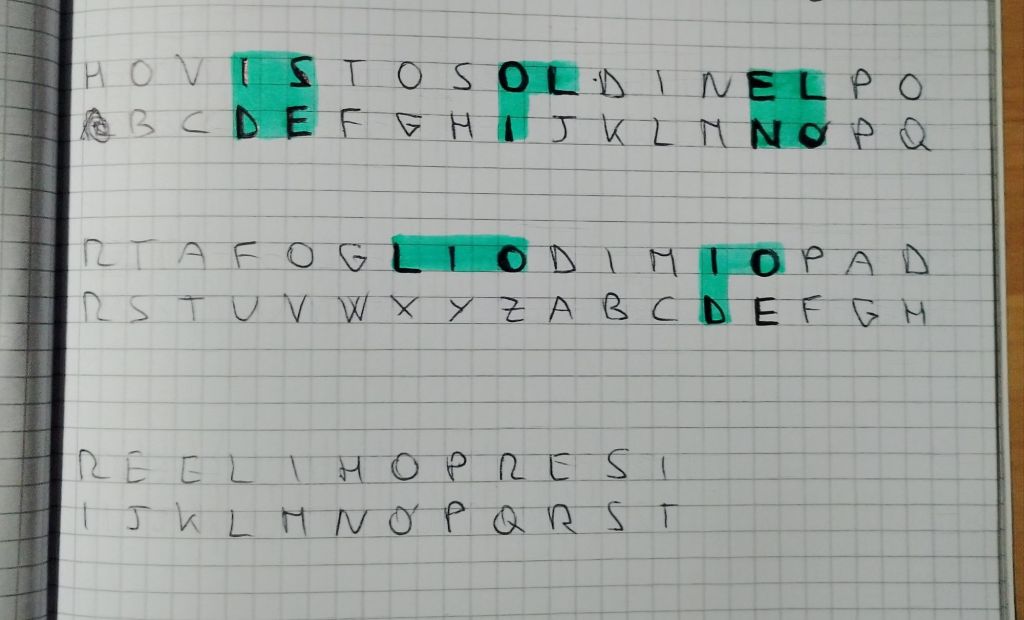 H O V I S T O S O L D I N E L P O
A B C D E F G H I J K L M N O P Q
R T A F O G L I O D I M I O P A D
R S T U V W X Y Z A B C D E F G H
R E E L I H O P R E S I
I J K L M N O P Q R S T